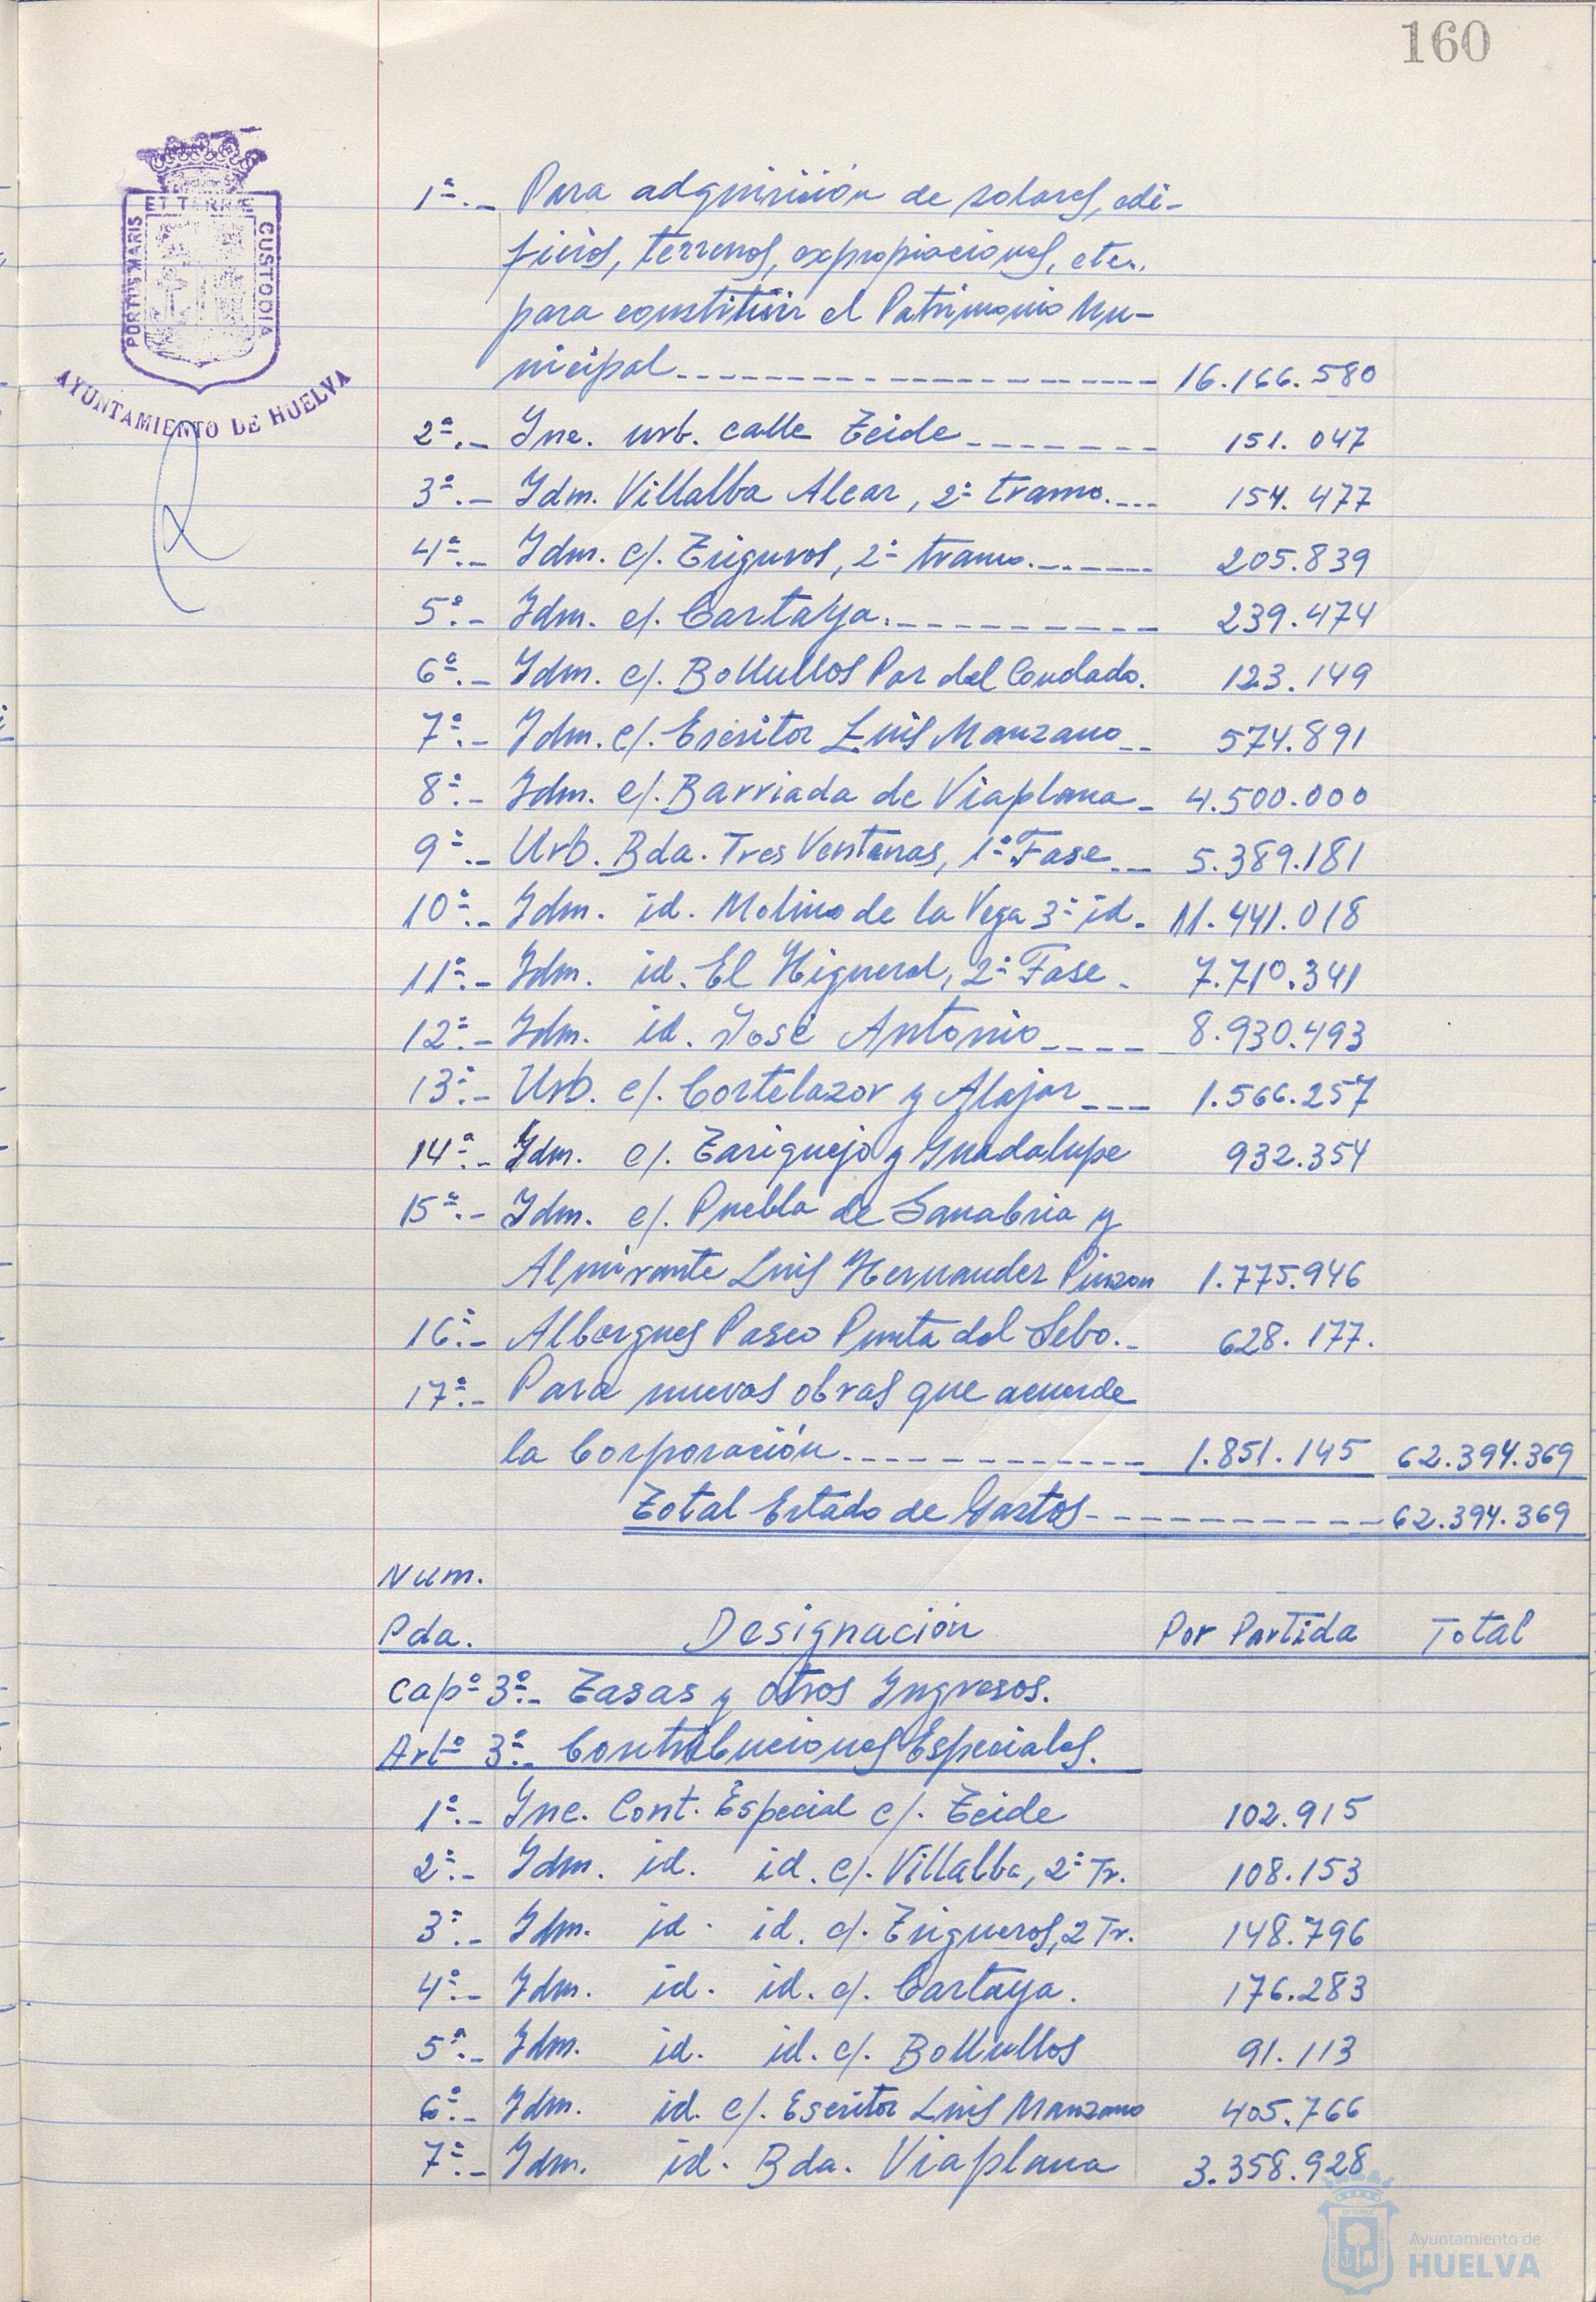 160
ET TERRE
PORTUS MARIS
CUSTODIA
AYUNTAMIENTO DE HUELVA
1ª.- Para adquisición de solares, edi-
ficios, terrenos, expropiaciones, etc..
para constituir el Patrimonio Mu-
nicipal 16.166.580
2ª.- Inc. urb. calle Teide 151.047
3ª.- Idm. Villalba Alcar, 2º tramo. 154.477
4ª.- Idm. c/. Trigueros, 2º tramo. 205.839
5ª.- Idm. c/. Cartaya. 239.474
6ª.- Idm. c/. Bollullos Par del Condado. 123.149
7ª.- Idm. c/. Escritor Luis Manzano 574.891
8ª.- Idm. c/. Barriada de Viaplana 4.500.000
9ª.- Urb. Bda. Tres Ventanas, 1ª Fase 5.389.181
10ª.- Idm. id. Molino de la Vega 3ª id. 11.441.018
11ª.- Idm. id. El Higueral, 2ª Fase 7.710.341
12ª.- Idm. id. José Antonio 8.930.493
13ª.- Urb. c/. Cortelazor y Alajar 1.566.257
14ª.- Idm. c/. Tariquejo y Guadalupe 932.354
15ª.- Idm. c/. Puebla de Sanabria y
Almirante Luis Hernandez Pinzon 1.775.946
16ª.- Albergues Paseo Punta del Sebo. 628.177.
17ª.- Para nuevas obras que acuerde
la Corporación 1.851.145 62.394.369
Total Estado de Gastos 62.394.369
Num.
Pda. Designación Por Partida Total
Capº 3º.- Tasas y otros Ingresos.
Artº 3º.- Contribuciones Especiales.
1ª.- Inc. Cont. Especial c/. Teide 102.915
2ª.- Idm. id. id. c/. Villalba, 2º Tr. 108.153
3ª.- Idm. id. id. c/. Trigueros, 2 Tr. 148.796
4ª.- Idm. id. id. c/. Cartaya. 176.283
5ª.- Idm. id. id. c/. Bollullos 91.113
6ª.- Idm. id. c/. Escritor Luis Manzano 405.766
7ª.- Idm. id. Bda. Viaplana 3.358.928
Ayuntamiento de
HUELVA